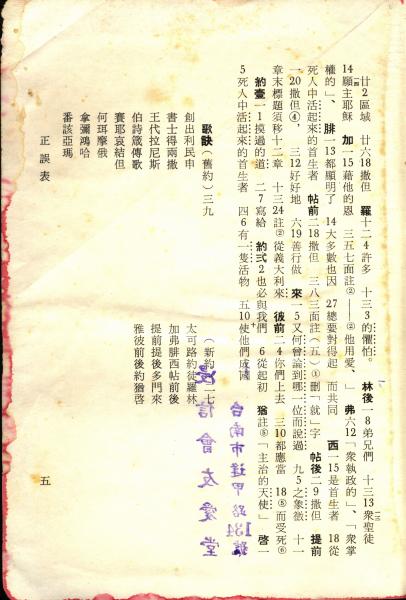 廿2區域　廿六18撒但　羅十二4許多　十三3的懼怕。　林後一8弟兄們　十三13衆聖徒
14願主耶穌　加一15藉他的恩　三五七面註②——②他用愛、」　弗六12「衆執政的」、「衆掌
權的」、　腓一13都顯明了　14大多數也因　27總要對得起　而共同　西一15是首生者　18從
死人中活起來的首生者　帖前二18撒但　三八三面註(五)①刪「就」字　帖後二9撒但　提前
一20撒但④，　三12好好地　六19善行做　來一5又何曾論到哪一位而說過　九5之象徵　十一
章末標題須移十二章　十三24註②從義大利來　彼前二4你們上去　三10都應當　18⑤而受死⑥
約壹一1摸過的道　二7寫給　約弍2也必與我們　6從起初　猶註⑤「主治的天使」　啓一
5死人中活起來的首生者　四6有一隻活物　五10使他們成國
歌訣（舊約）三九
創出利民申
書士得兩撒
王代拉尼斯
伯詩箴傳歌
賽耶哀結但
何珥摩俄
拿彌鴻哈
番該亞瑪
（新約）二七
太可路約徒羅林
加弗腓西帖前後
提前提後多門來
雅彼前後約猶啓
信會友愛堂
台南市逢甲路
134號
正誤表
五